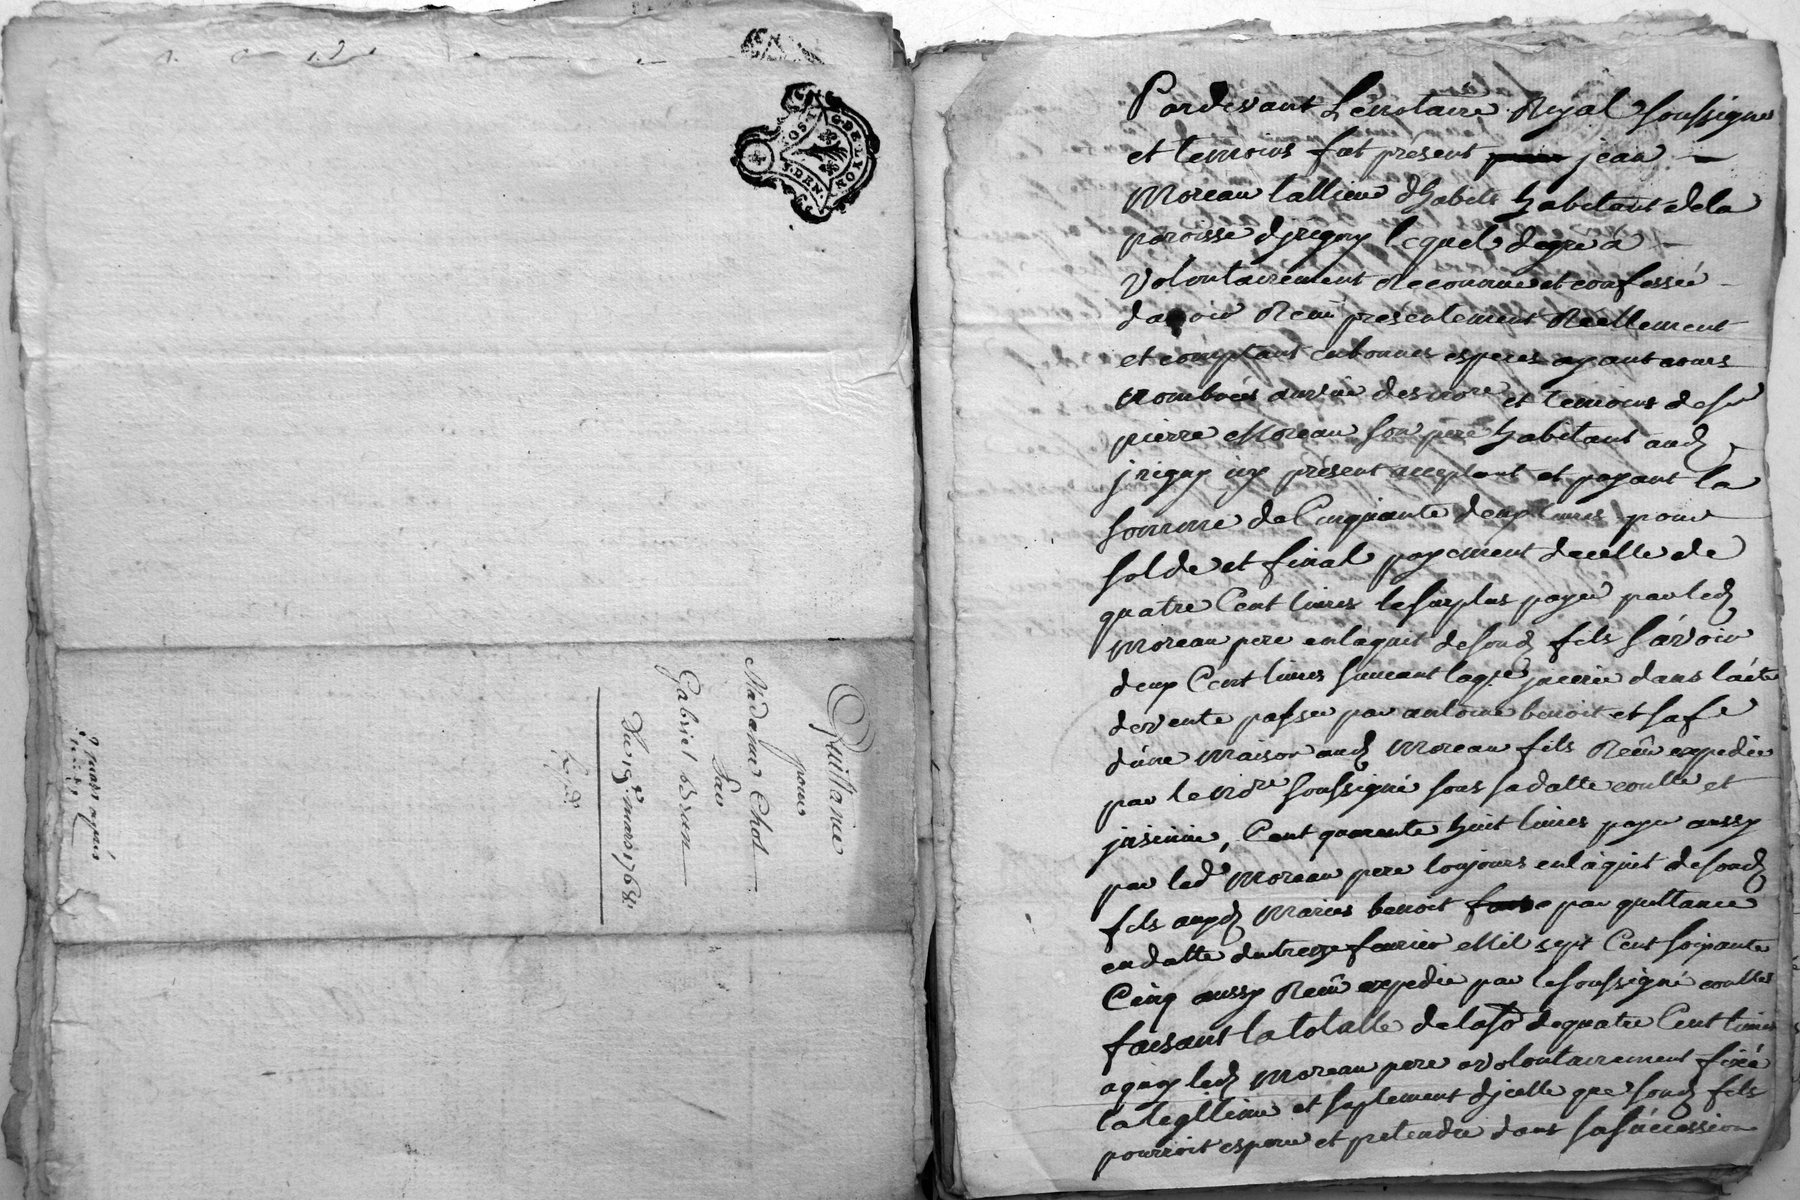 G. DE LYON
2. DEN
Quittance
pour
Madame Chol
Par
Gabriel
Du 19e. mars 1768.
Pardevant Le notaire Royal soussigné
et temoins fut présent jean
Moreau tallieur d'habits habitant de la
paroisse d'jrigny lequel de gré a
volontairement Reconnu et confessé
davoir Reçu présentement Réellement
et comptant en bonnes especes ayant cours
nombrées au vû des nore et temoins de sr
pierre Moreau son pere habitant aud
jrigny icy présent acceptant et payant la
somme de Cinquante deux livres pour
solde et final payement de celle de
quatre Cent livres le surplus payé par led
Moreau pere en laquit de sond fils sçavoir
deux Cent livres suivant la qce jncerée dans l'acte
de vente passée par antoine benoit et sa fe
d'une maison aud Moreau fils Reçu expedié
par le nore soussigné sous sa datte conllé et
jnsinué, Cent quarante huit livres payé aussy
par led Moreau pere toujours en laquit de sond
fils auxd Mariés benoit par quittance
en datte du treize fevrier Mil sept Cent soixante
Cinq aussy Reçu expedié par le soussigné conllée
faisant la totalle de la so de quatre Cent livres
a quoy led Moreau pere a volontairement fixé
la legitime et suplement d'jcelle que sond fils
pourroit esperer et pretendre dans sa succession